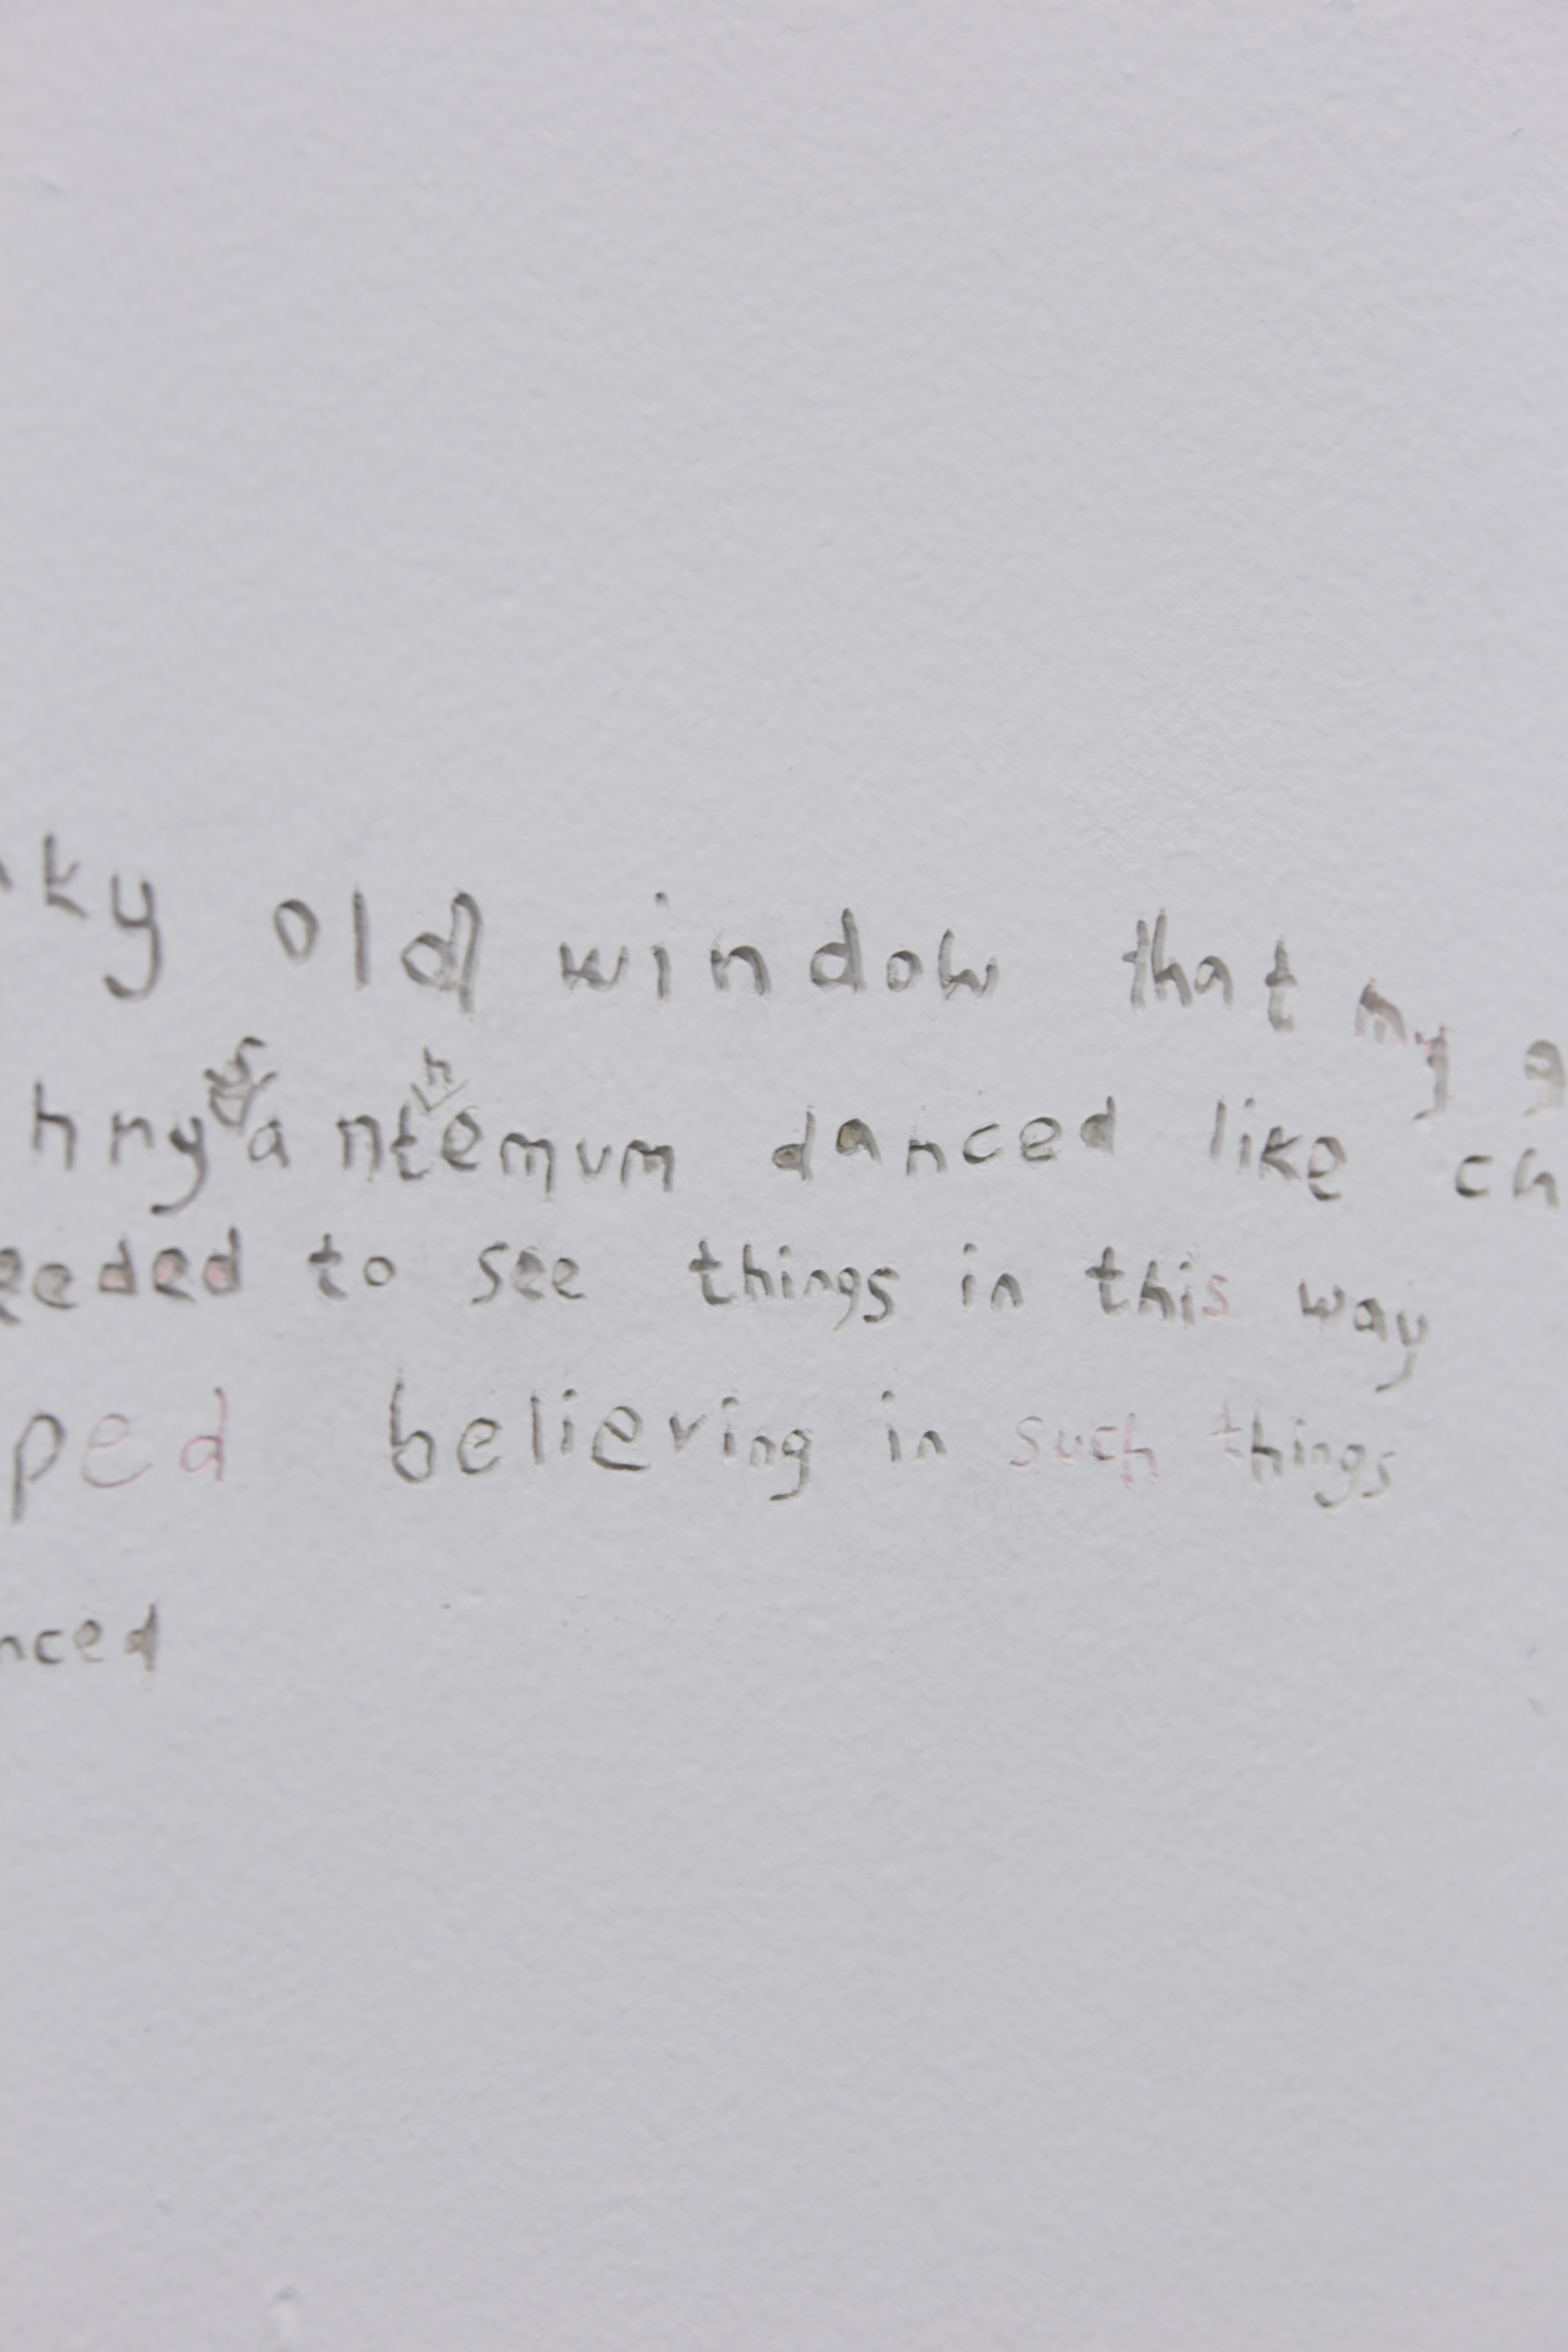 ky old window that my g
hny^sa nt^hemum danced like ch
eeded to see things in this way
ped believing in such things
nced